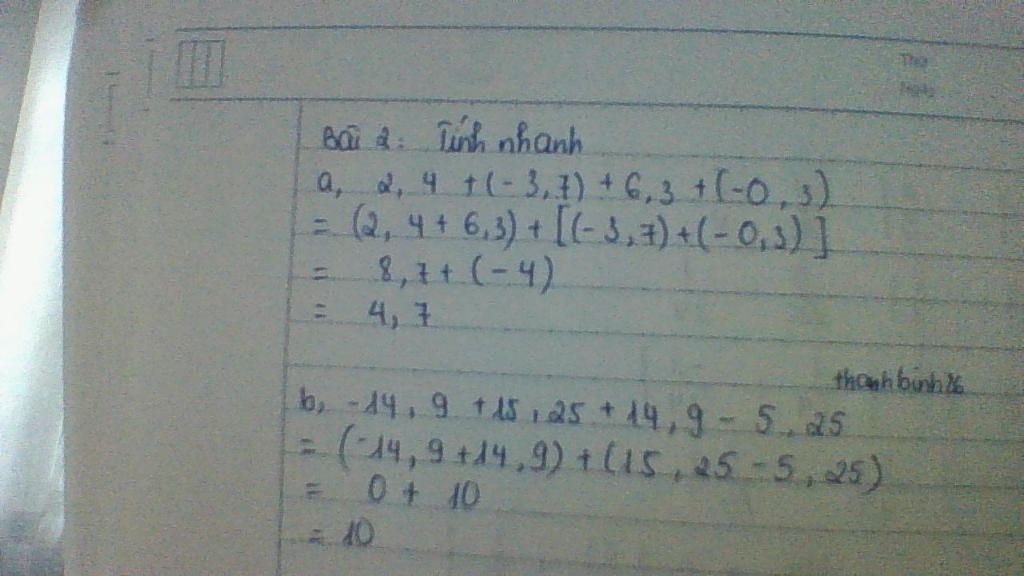 Thứ
Ngày
Bài 2: Tính nhanh
a, 2,4 + (-3,7) + 6,3 + (-0,3)
= (2,4 + 6,3) + [(-3,7) + (-0,3)]
= 8,7 + (-4)
= 4,7
thanhbinh26
b, -14,9 + 15,25 + 14,9 - 5,25
= (-14,9 + 14,9) + (15,25 - 5,25)
= 0 + 10
= 10